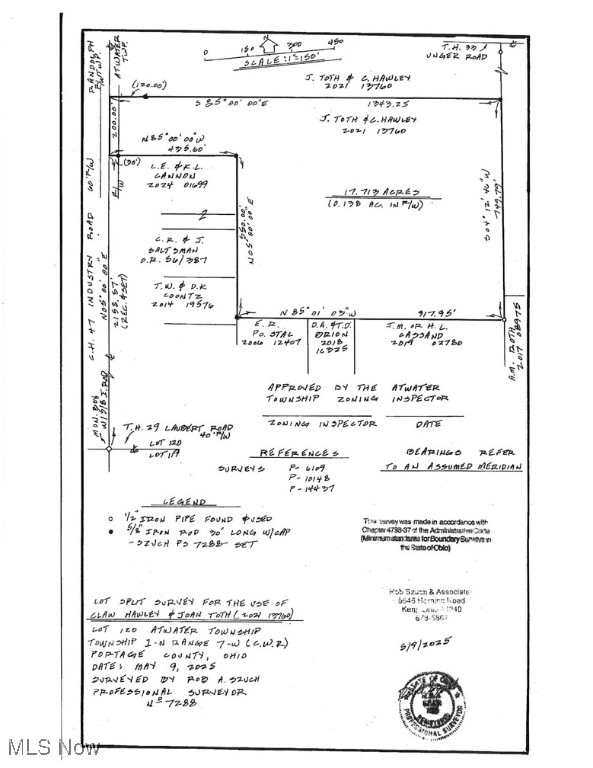 0 150 300 450
SCALE: 1"=150'
T.H. 33
UNGER ROAD
RANDOLPH
TWP.
ATWATER
TWP.
(120.00')
J. TOTH & C. HAWLEY
2021 13760
S 85° 00' 00" E
1343.25
200.00'
J. TOTH & C. HAWLEY
2021 13760
N 85° 00' 00" W
435.60'
(30')
R/W
L.E. & K.L.
CANNON
2024 01699
17.713 ACRES
(0.138 AC. IN R/W)
S 04° 12' 46" W
749.79'
550.00'
N 05° 00' 00" E
2
C.R. & J.
SALTSMAN
O.R. 56/387
T.W. & D.K
COONTZ
2014 19576
C.H. 47 INDUSTRY ROAD 60' R/W
N 05° 00' 00" E
2158.57'
(REC. & SET)
N 85° 01' 03" W
917.95'
E. R.
POSTAL
2006 12407
D.A. & T.D.
BRION
2018
16325
J.M. OR H.L.
CASSAND
2019 02780
A.M. ROTH
2017 08975
APPROVED BY THE ATWATER
TOWNSHIP ZONING INSPECTOR
ZONING INSPECTOR DATE
MON. BOX
W/ 5/8 I. ROD
T.H. 29 LAUBERT ROAD
40' R/W
LOT 120
LOT 119
REFERENCES
SURVEYS P- 6109
P- 10148
P- 14437
BEARINGS REFER
TO AN ASSUMED MERIDIAN
LEGEND
○ 1/2" IRON PIPE FOUND & USED
● 5/8" IRON ROD 30" LONG W/CAP
- SZUCH PS 7288 - SET
This survey was made in accordance with
Chapter 4733-37 of the Administrative Code
(Minimum standards for Boundary Surveys in
the State of Ohio)
Rob Szuch & Associates
Road
678-5867
LOT SPLIT SURVEY FOR THE USE OF
CLAW HAWLEY & JOAN TOTH (2021 13760)
LOT 120 ATWATER TOWNSHIP
TOWNSHIP 1-N RANGE 7-W (C.W.R.)
PORTAGE COUNTY, OHIO
DATE: MAY 9, 2025
SURVEYED BY ROB A. SZUCH
PROFESSIONAL SURVEYOR
Nº 7288
5/9/2025
STATE OF OHIO
REGISTERED
PROFESSIONAL SURVEYOR
MLS Now